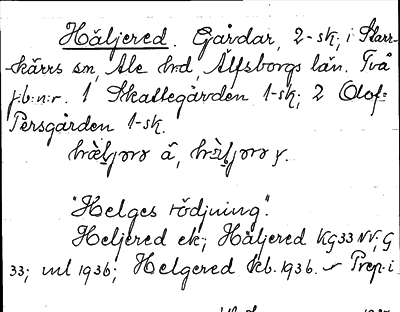 Häljered. Gårdar, 2-sk, i Starr-
kärrs sn, Ale hrd, Älfsborgs län. Två
j:b:n:r. 1 Skattegården 1-sk; 2 Olof-
Persgården 1-sk.
"Helges rödjning".
Heljered ek; Häljered KG33 NV; G
33; ml 1936; Helgered kb. 1936. ~ Prep. i